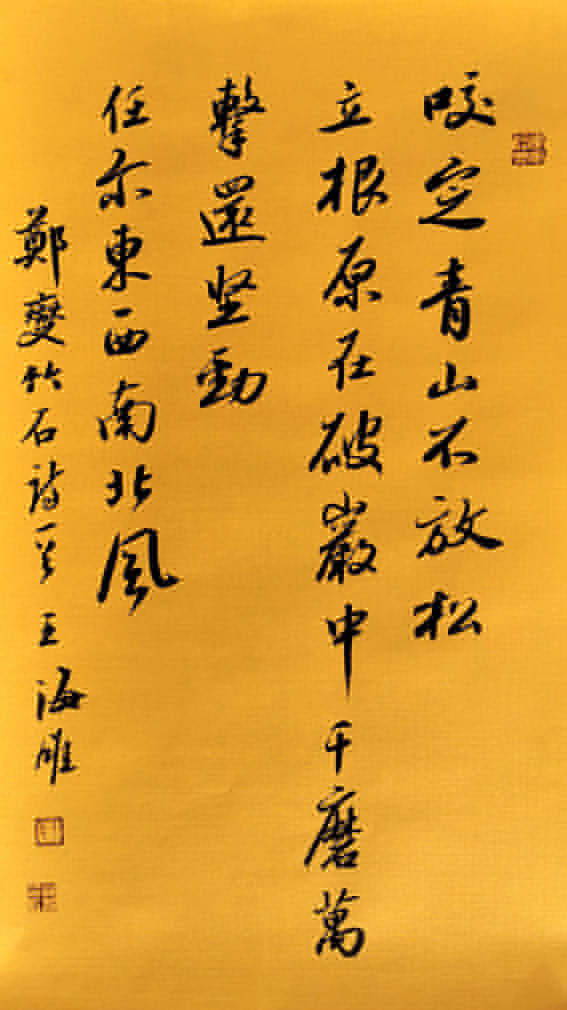 咬定青山不放松
立根原在破巖中千磨萬
擊還坚勁
任尔東西南北風
鄭燮竹石詩一首 王海雁